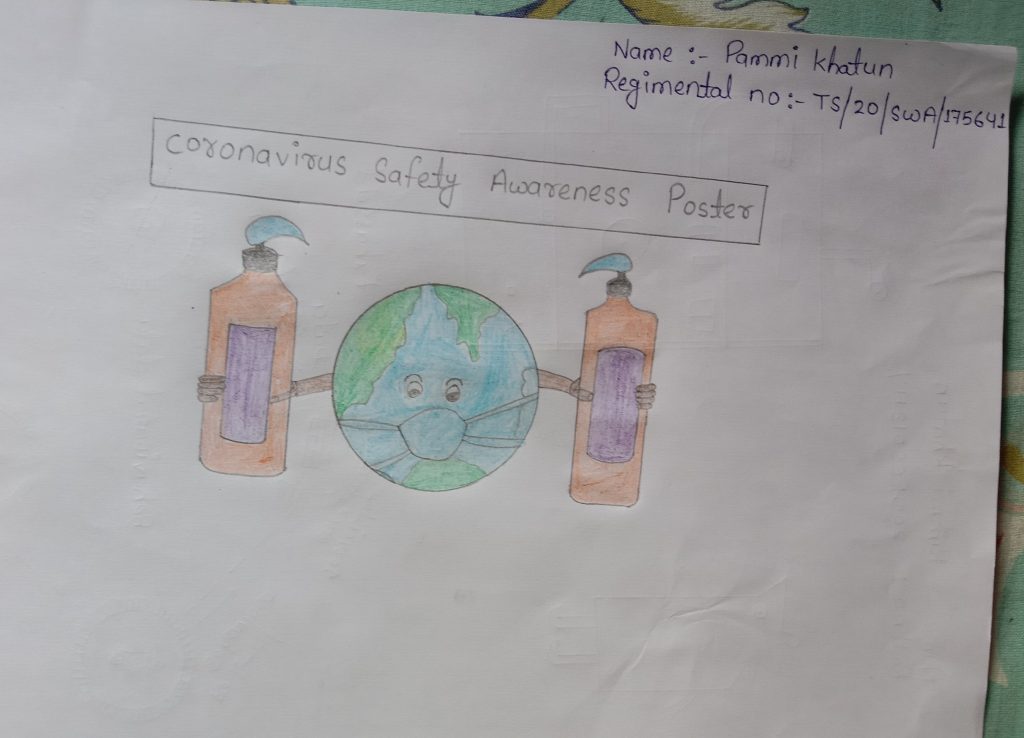 Name :- Pammi Khatun
Regimental no:- TS/20/SWA/175641
Coronavirus Safety Awareness Poster